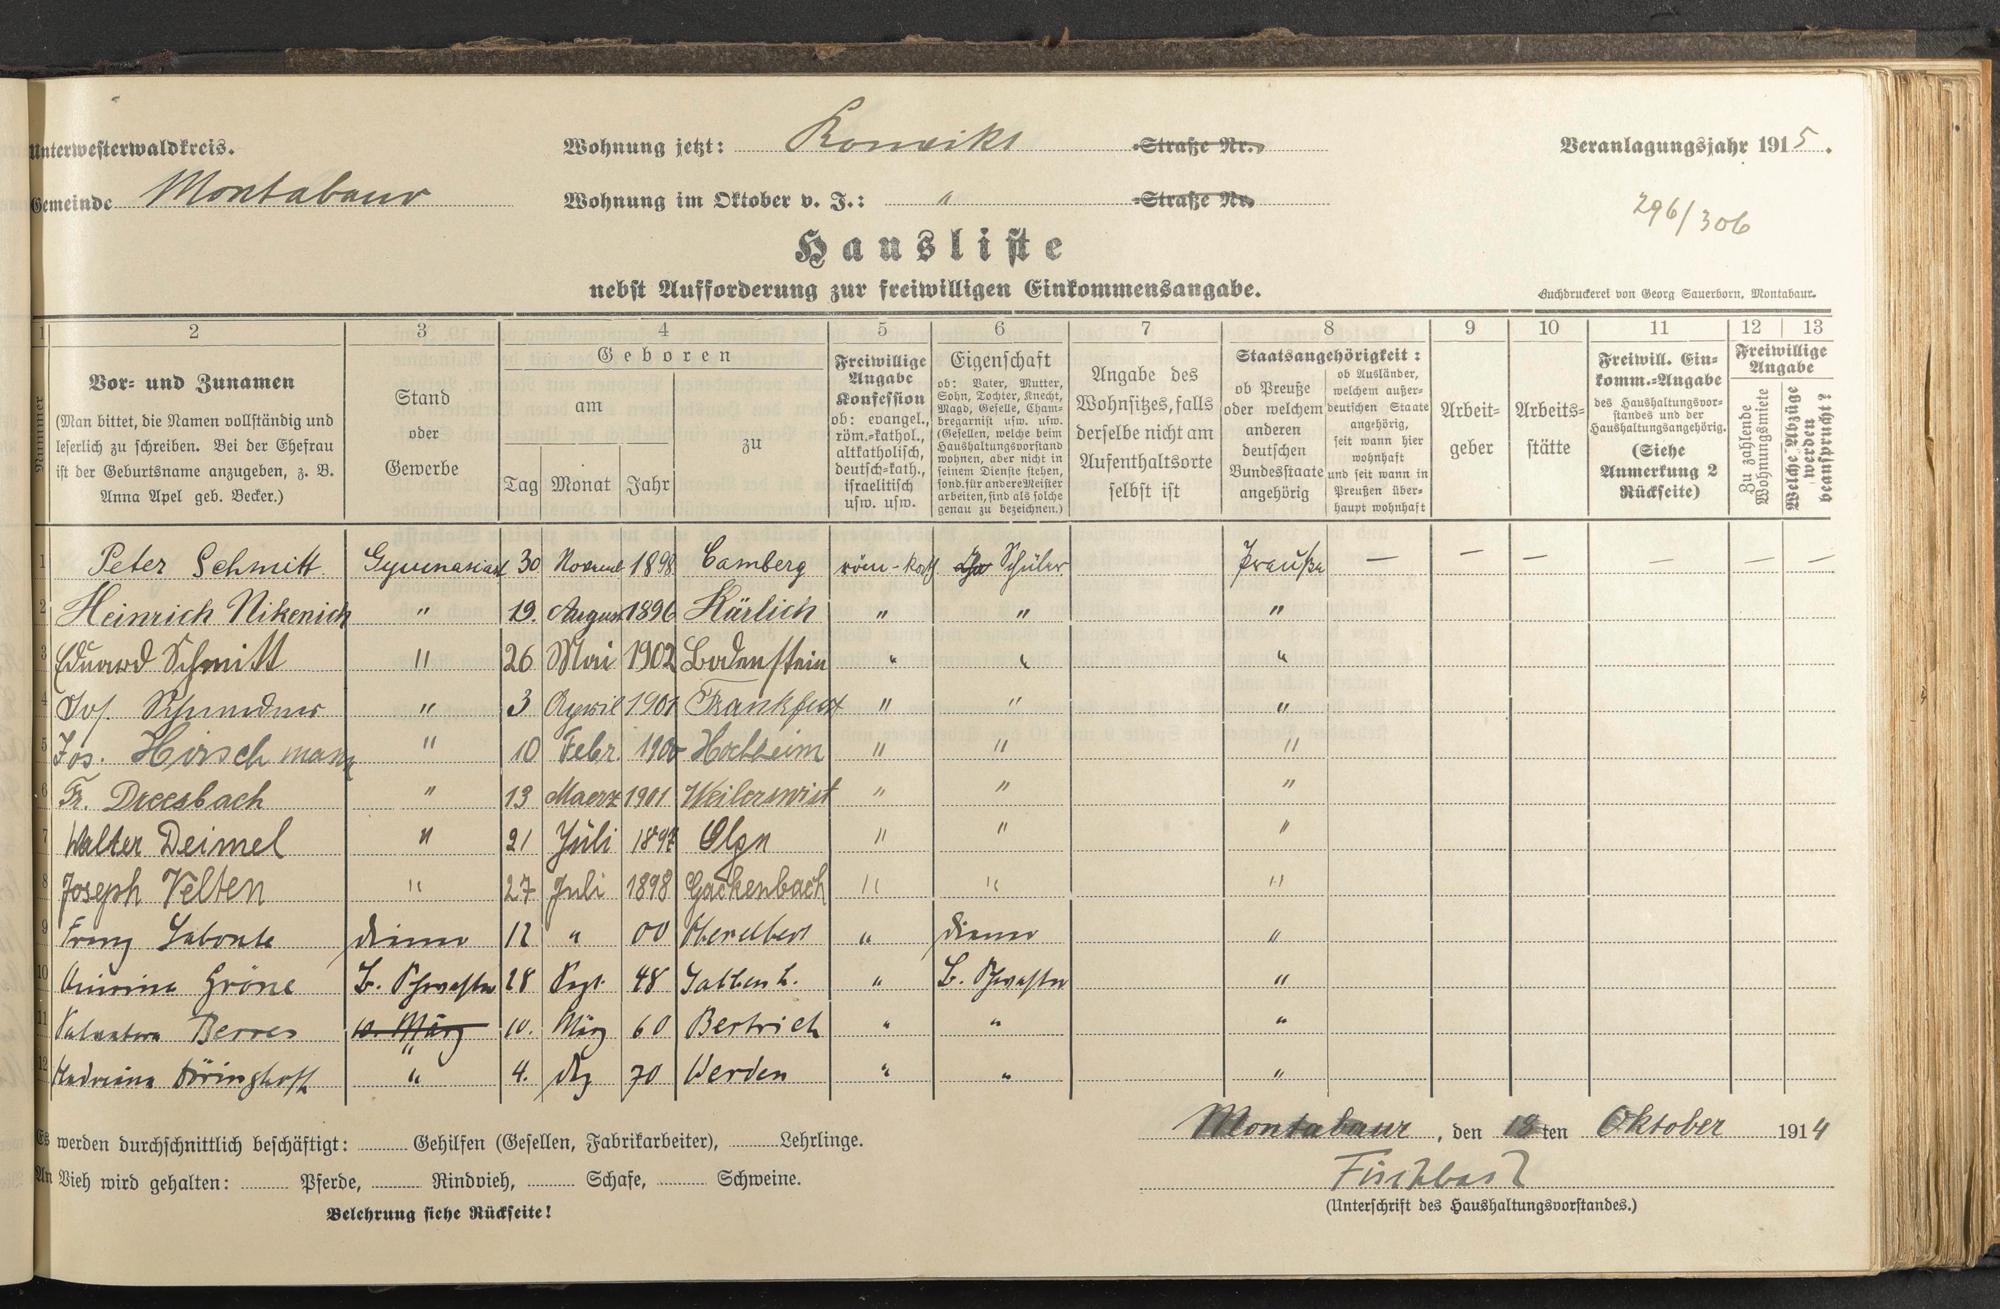 Unterwesterwaldkreis.
Wohnung jetzt: Konvikt -Straße Nr.
Veranlagungsjahr 1915.
Gemeinde Montabaur
Wohnung im Oktober v. J.: " -Straße Nr.
296/306
Hausliste
nebst Aufforderung zur freiwilligen Einkommensangabe.
Buchdruckerei von Georg Sauerborn, Montabaur.
1 2 3 4 5 6 7 8 9 10 11 12 13
Nummer
Vor- und Zunamen
(Man bittet, die Namen vollständig und
leserlich zu schreiben. Bei der Ehefrau
ist der Geburtsname anzugeben, z. B.
Anna Apel geb. Becker.)
Stand
oder
Gewerbe
Geboren
am
Tag Monat Jahr
zu
Freiwillige
Angabe
Konfession
ob: evangel.,
röm.-kathol.,
altkatholisch,
deutsch-kath.,
israelitisch
usw. usw.
Eigenschaft
ob: Vater, Mutter,
Sohn, Tochter, Knecht,
Magd, Geselle, Cham-
bregarnist usw. usw.
(Gesellen, welche beim
Haushaltungsvorstand
wohnen, aber nicht in
seinem Dienste stehen,
sond. für andere Meister
arbeiten, sind als solche
genau zu bezeichnen.)
Angabe des
Wohnsitzes, falls
derselbe nicht am
Aufenthaltsorte
selbst ist
Staatsangehörigkeit:
ob Preuße
oder welchem
anderen
deutschen
Bundesstaate
angehörig
ob Ausländer,
welchem außer-
deutschen Staate
angehörig,
seit wann hier
wohnhaft
und seit wann in
Preußen über-
haupt wohnhaft
Arbeit-
geber
Arbeits-
stätte
Freiwill. Ein-
komm.-Angabe
des Haushaltungsvor-
standes und der
Haushaltungsangehörig.
(Siehe
Anmerkung 2
Rückseite)
Freiwillige
Angabe
Zu zahlende
Wohnungsmiete
Welche Abzüge
werden
beansprucht?
1 Peter Schmitt Gymnasiast 30 Novemb 1898 Camberg röm-kath Schüler Preuße — — — — — —
2 Heinrich Nikenich " 19. August 1896 Kärlich " " "
3 Eduard Schmitt " 26 Mai 1902 Bodenstein " " "
4 Jos. " 3 April 1901 Frankfurt " " "
5 Jos. Hirschmann " 10 Febr. 1900 Hochheim " " "
6 Fr. Dreesbach " 13 Maerz 1901 Weilerswist " " "
7 Walter Deimel " 21 Juli 1897 Olpe " " "
8 Joseph Velten " 27 Juli 1898 Gackenbach " " "
9 Franz Labonte Diener 12 " 00 Oberelbert " Diener "
10 Gröne B. Schwester 28 Sept. 48 " B. Schwester "
11 Berres 10. März " 10. März 60 Bertrich " " "
12 " 4. Dez 70 Werden " " "
Es werden durchschnittlich beschäftigt: Gehilfen (Gesellen, Fabrikarbeiter), Lehrlinge.
An Vieh wird gehalten: Pferde, Rindvieh, Schafe, Schweine.
Belehrung siehe Rückseite!
Montabaur, den 18ten Oktober 1914
Fischbach
(Unterschrift des Haushaltungsvorstandes.)